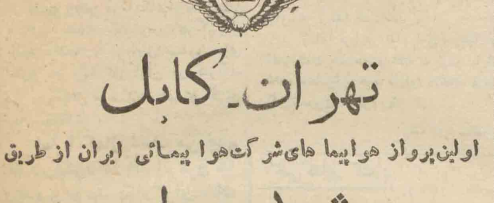 تهران - کابل
اولین پرواز هواپیما های شرکت هواپیمائی ایران از طریق